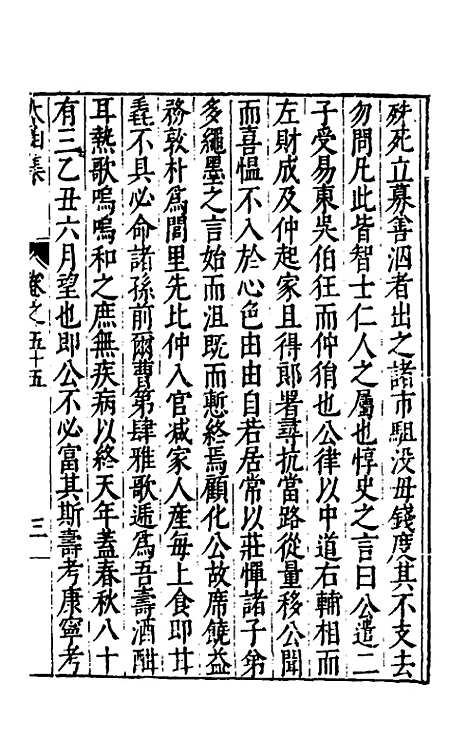 殊死立募善泅者出之諸市駔没母錢度其不支去
勿問凡此皆智士仁人之屬也惇史之言曰公遣二
子受易東吳伯狂而仲狷也公律以中道右輔相而
左財成及仲起家且得郎署尋抗當路從量移公聞
而喜慍不入於心色由由自若居常以莊惲諸子弟
多繩墨之言始而沮既而慙終焉顧化公故席饒益
務敦朴爲閭里先比仲入官减家人産每上食即甘
毳不具必命諸孫前爾曹第肆雅歌遞爲吾壽酒酣
耳熱歌嗚嗚和之庶無疾病以終天年蓋春秋八十
有三乙丑六月望也即公不必富其斯壽考康寧考
太函集
卷之五十五
三